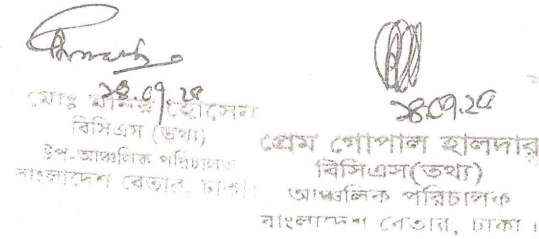 মোঃ হোসেন
বিসিএস (তথ্য)
উপ-আঞ্চলিক পরিচালক
বাংলাদেশ বেতার, ঢাকা।
প্রেম গোপাল হালদার
বিসিএস(তথ্য)
আঞ্চলিক পরিচালক
বাংলাদেশ বেতার, ঢাকা।